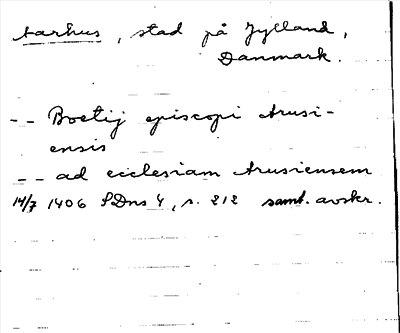 Aarhus, stad på Jylland,
Danmark.
-- Boetij episcopi Arusi-
ensis
-- ad ecclesiam Arusiensem
14/7 1406 SDns 1, s. 212 samt. avskr.